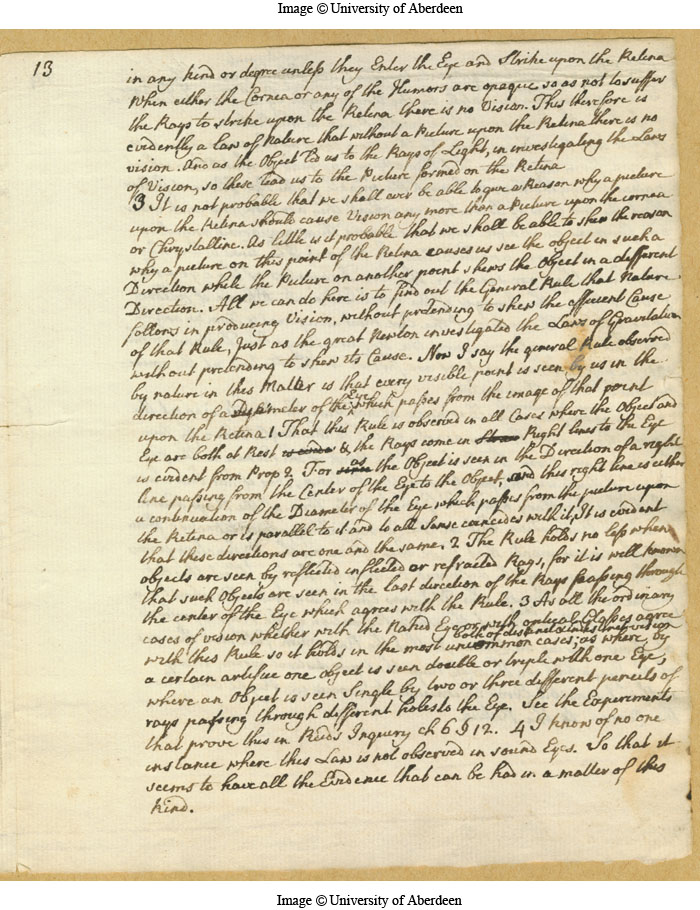 Image © University of Aberdeen
13
in any kind or degree unless they Enter the Eye and Strike upon the Retina
When either the Cornea or any of the Humors are opaque so as not to suffer
the Rays to strike upon the Retina there is no Vision. This therefore is
evidently a law of Nature that without a Picture upon the Retina there is no
vision. And as the Object led us to the Rays of Light, in investigating the Laws
of Vision, so these lead us to the Picture formed on the Retina
3 It is not probable that we shall ever be able to give a Reason why a picture
upon the Retina should cause Vision any more than a Picture upon the cornea
or Chrystalline. As little is it probable that we shall be able to shew the reason
why a picture on this point of the Retina causes us see the object in such a
Direction while the Picture on another point shews the Object in a different
Direction. All we can do here is to find out the General Rule that Nature
follows in producing Vision, without pretending to shew the efficient Cause
of that Rule, Just as the great Newton investigated the Laws of Gravitation
without pretending to shew its Cause. Now I say the general Rule observed
by nature in this Matter is that every visible point is seen by us in the
direction of a diameter of the Eye which passes from the image of that point
upon the Retina 1 That this Rule is observed in all Cases where the Object and
Eye are both at Rest & the Rays come in Right lines to the Eye
is evident from Prop 2. For as the Object is seen in the Direction of a right
line passing from the Center of the Eye to the Object, and this right line is either
a continuation of the Diameter of the Eye which passes from the picture upon
the Retina or is parallel to it and to all Sense coincides with it, It is evident
that these directions are one and the same. 2 The Rule holds no less when
objects are seen by reflected inflected or refracted Rays, for it is well known
that such Objects are seen in the last direction of the Rays passing through
the center of the Eye which agrees with the Rule. 3 As all the ordinary
cases of vision whether with the Naked Eye or with optical Glasses agree
both of distinct & indistinct vision
with this Rule so it holds in the most uncommon cases; as where, by
a certain artifice one object is seen double or triple with one Eye,
where an Object is seen Single by two or three different pencils of
rays passing through different holes to the Eye. See the Experiments
that prove this in Reids Inquiry ch 6 § 12. 4 I know of no one
instance where this Law is not observed in sound Eyes. So that it
seems to have all the Evidence that can be had in a matter of this
kind.
Image © University of Aberdeen